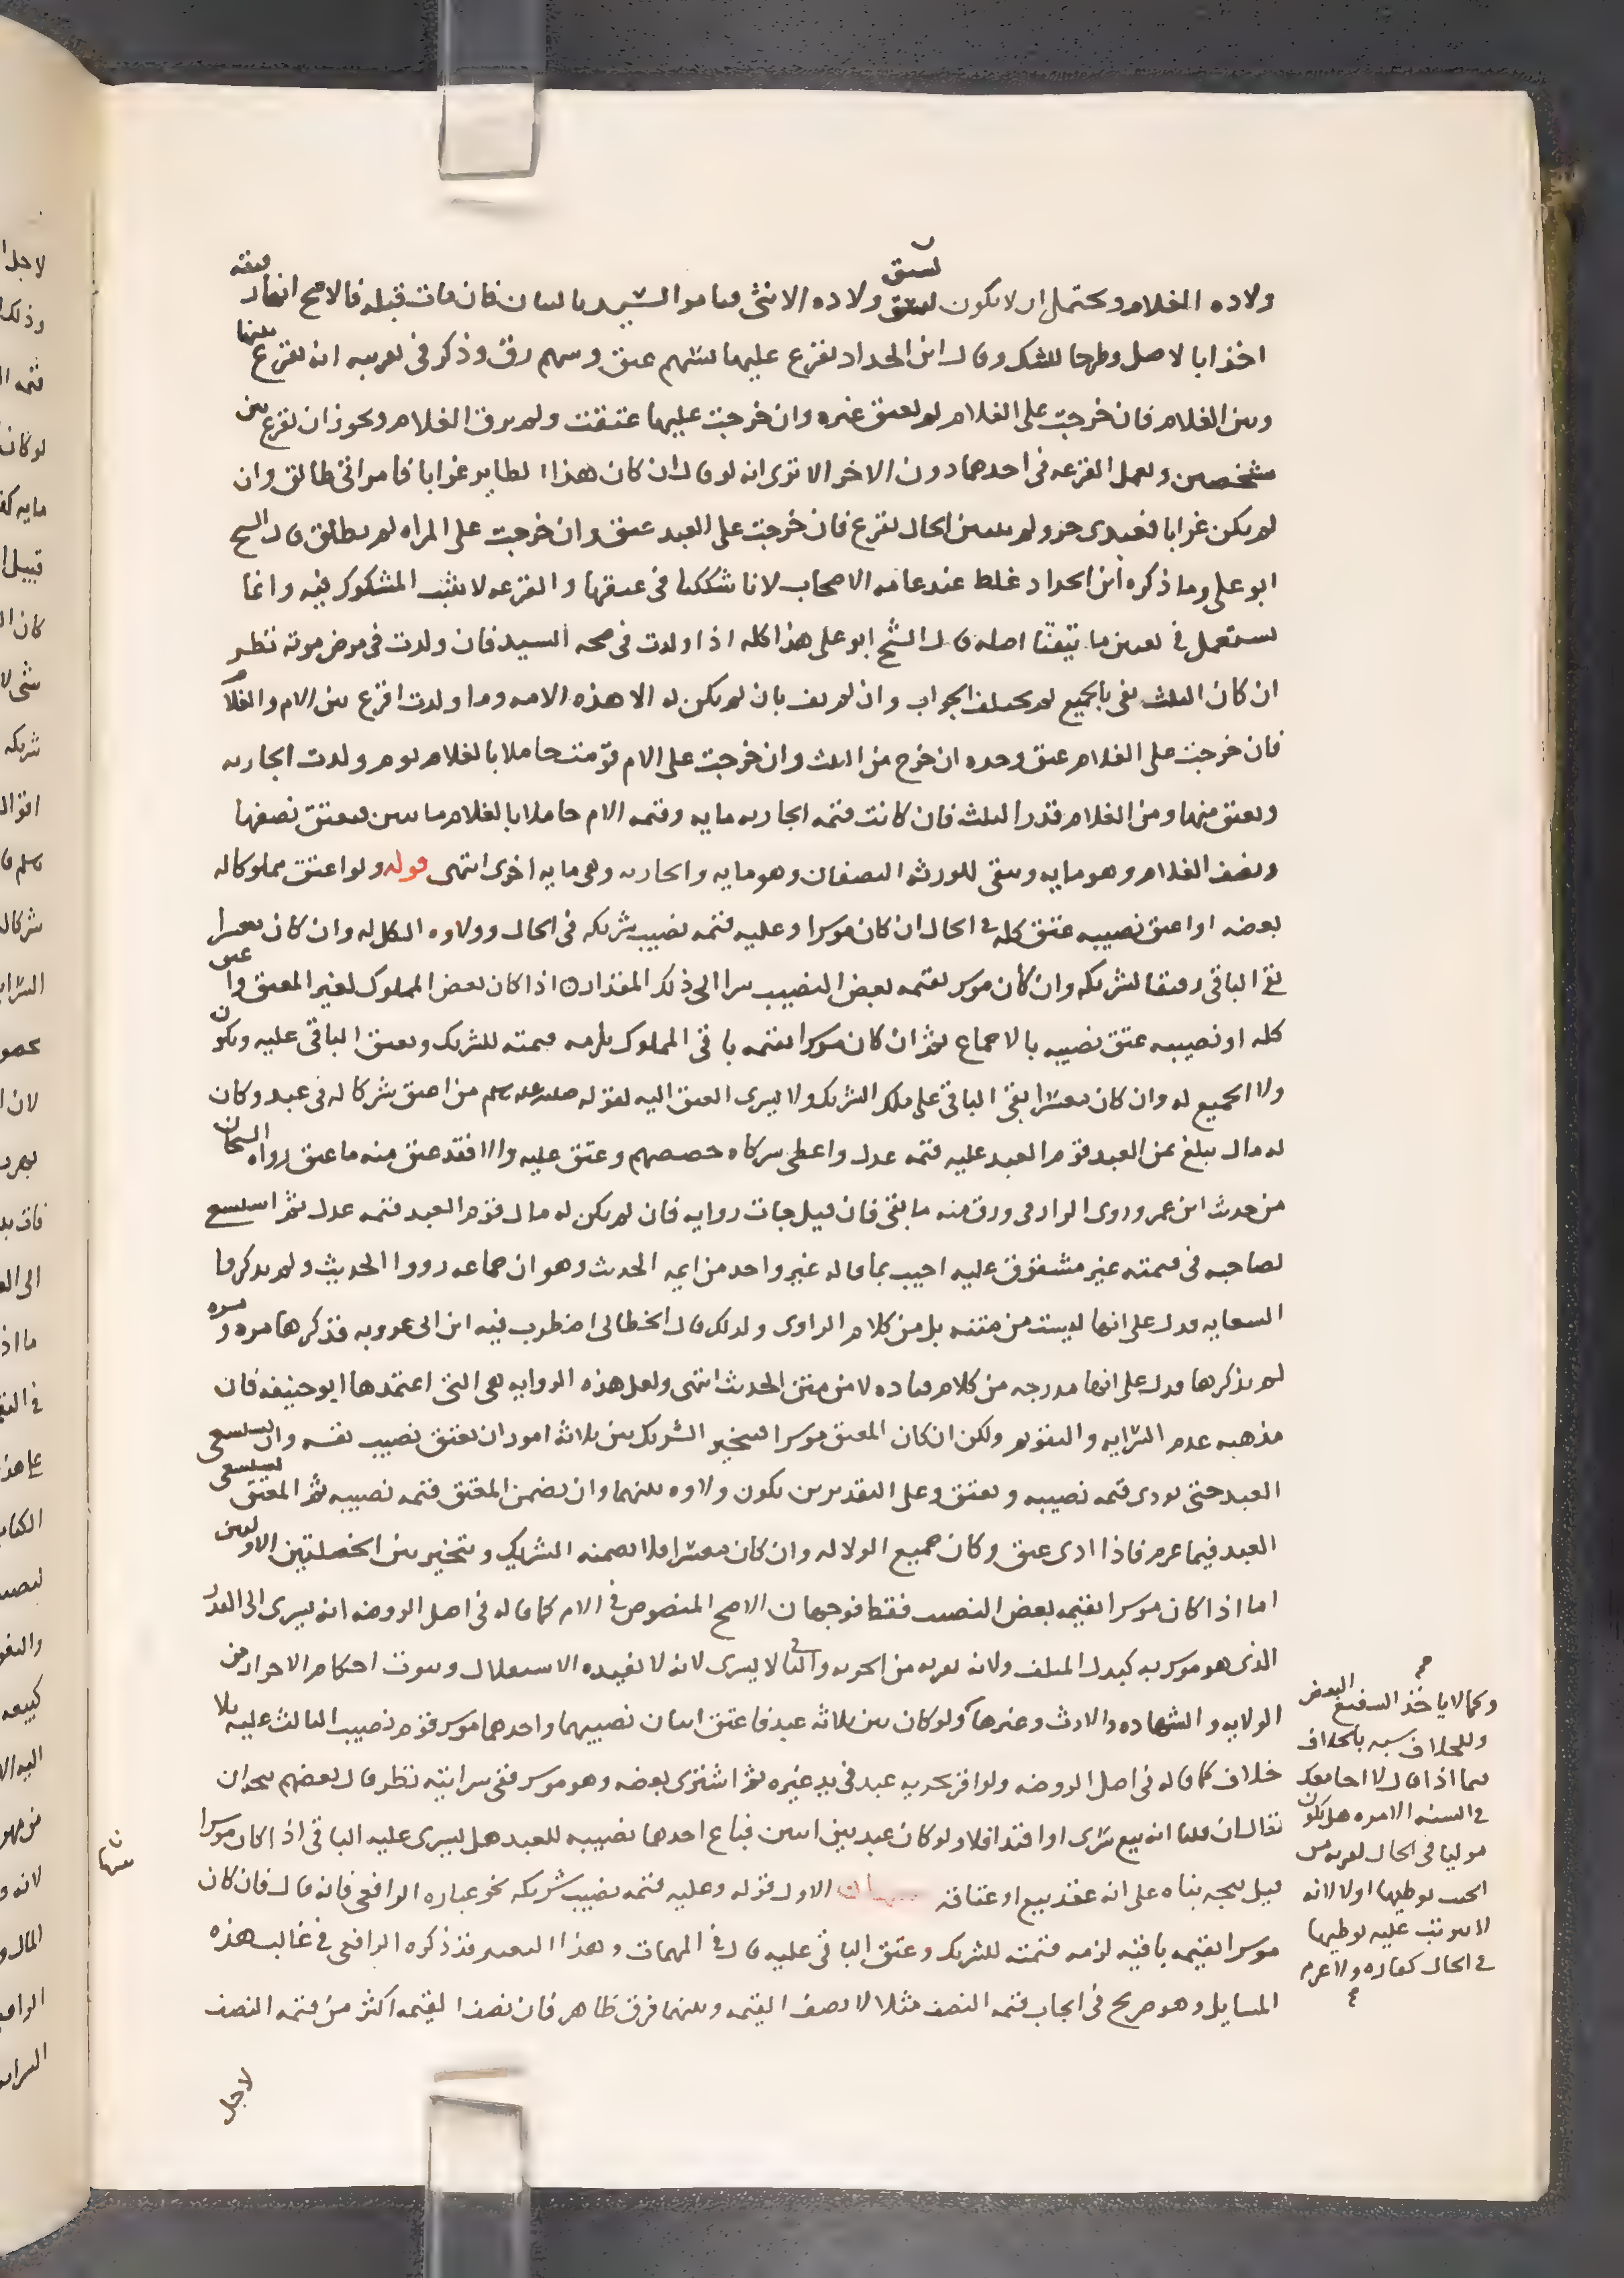 ولاده الغلام ويحتمل ان لا يكون لسبق ولاده الانثى فيامر السيد بالبيان فان مات قبله فالاصح انها رقيقه
اخذا بالاصل وطرحا للشك وقال ابن الحداد يقرع عليها بسهم عتق وسهم رق وذكر في تقريبه انه يقرع بينها
وبين الغلام فان خرجت على الغلام لم يعتق غيره وان خرجت عليها عتقت ولم يرق الغلام ويجوز ان يقرع بين
شخصين وتعمل القرعه في احدهما دون الاخر الا ترى انه لو قال ان كان هذا الطاير غرابا فامراتي طالق وان
لم يكن غرابا فعبدي حر ولم يتبين الحال يقرع فان خرجت على العبد عتق وان خرجت على المراه لم يطلق قال الشيخ
ابو علي وما ذكره ابن الحداد غلط عند عامه الاصحاب لانا شككنا في عتقها والقرعه لا تثبت المشكوك فيه وانما
تستعمل في تعيين ما تيقنا اصله قال الشيخ ابو علي هذا كله اذا ولدت في صحه السيد فان ولدت في مرض موته نظر
ان كان الثلث يفي بالجميع لم يختلف الجواب وان لم يف بان لم يكن له الا هذه الامه وما ولدت اقرع بين الام والغلام
فان خرجت على الغلام عتق وحده ان خرج من الثلث وان خرجت على الام قومت حاملا بالغلام يوم ولدت الجاريه
ويعتق منها ومن الغلام قدر الثلث فان كانت قيمه الجاريه مايه وقيمه الام حاملا بالغلام مايتين فيعتق نصفها
ونصف الغلام وهو مايه ويبقى للورثه النصفان وهو مايه والجاريه وهي مايه اخرى انتهى قوله ولو اعتق مملوكا له
بعضه او اعتق نصيبه عتق كله في الحال ان كان موسرا وعليه قيمه نصيب شريكه في الحال وولاوه الكل له وان كان معسرا
بقي الباقي رقيقا لشريكه وان كان موسر بقيمه بعض النصيب سرا الى ذلك المقدار اذا كان بعض المملوك لغير المعتق واعتق
كله او نصيبه عتق نصيبه بالاجماع ثم ان كان موسرا بقيمه باقي المملوك يلزمه قيمته للشريك ويعتق الباقي عليه ويكون
ولا الجميع له وان كان معسرا بقي الباقي على ملك الشريك ولا يسرى العتق اليه لقوله صلى الله عليه وسلم من اعتق شركا له في عبد وكان
له مال يبلغ ثمن العبد قوم العبد عليه قيمه عدل واعطى شركاه حصصهم وعتق عليه والا فقد عتق منه ما عتق رواه الشيخان
من حديث ابن عمر وروى الدارمي ورق منه ما بقي فان قيل جات روايه فان لم يكن له مال قوم العبد قيمه عدل ثم استسعى
لصاحبه في قيمته غير مشقوق عليه اجيب بما قاله غير واحد من ايمه الحديث وهو ان جماعه رووا الحديث ولم يذكروا
السعايه فدل على انها ليست من متنه بل من كلام الراوي ولذلك قال الخطابي اضطرب فيه ابن ابي عروبه فذكرها مره ومره
لم يذكرها فدل على انها مدرجه من كلام قتاده لا من متن الحديث انتهى ولعل هذه الروايه هي التي اعتمدها ابو حنيفه فان
مذهبه عدم السرايه والتقويم ولكن ان كان المعتق موسرا فيخير الشريك بين ثلاثه امور ان يعتق نصيب نفسه وان يستسعى
العبد حتى يودي قيمه نصيبه ويعتق وعلى التقديرين يكون ولاوه بينهما وان يضمن المعتق قيمه نصيبه ثم المعتق ليستسعى
العبد فيما غرم فاذا ادى عتق وكان جميع الولا له وان كان معسرا فلا يضمنه الشريك ويتخير بين الخصلتين الاوليين
اما اذا كان موسرا بقيمه بعض النصيب فقط فوجهان الاصح المنصوص في الام كما قاله في اصل الروضه انه يسري الى القدر
الذي هو موسر به كبدل المتلف ولانه تقريب من الحريه والثاني لا يسرى لانه لا يفيده الاستقلال وثبوت احكام الاحرار من
الولايه والشهاده والارث وغيرها ولو كان بين ثلاثه عبد فاعتق اثنان نصيبهما واحدهما موسر قوم نصيب الثالث عليه بلا
خلاف كما قاله في اصل الروضه ولو اقر بحريه عبد في يد غيره ثم اشترى بعضه وهو موسر ففي سرايته نظر قال بعضهم يتجه ان
يقال ان قلنا انه بيع سرى او افتدا فلا ولو كان عبد بين اثنين فباع احدهما نصيبه للعبد هل يسرى عليه الباقي اذا كان موسرا
قيل يتجه بناه على انه عقد بيع او عتاقه تنبيهات الاول قوله وعليه قيمه نصيب شريكه نحو عباره الرافعي فانه قال فان كان
موسرا بقيمه باقيه لزمه قيمته للشريك وعتق الباقي عليه قال في المهمات وهذا التعبير قد ذكره الرافعي في غالب هذه
المسايل وهو صريح في ايجاب قيمه النصف مثلا لا نصف القيمه وبينهما فرق ظاهر فان نصف القيمه اكثر من قيمه النصف
لاجل
وكما لا ياخذ الشفيع البعض
وللخلاف شبه بالخلاف
فيما اذا قال لا اجامعك
في السنه الا مره هل يكون
موليا في الحال
لوطيها اولا لانه
لا يترتب عليه لوطيها
في الحال كفاره ولا غرم